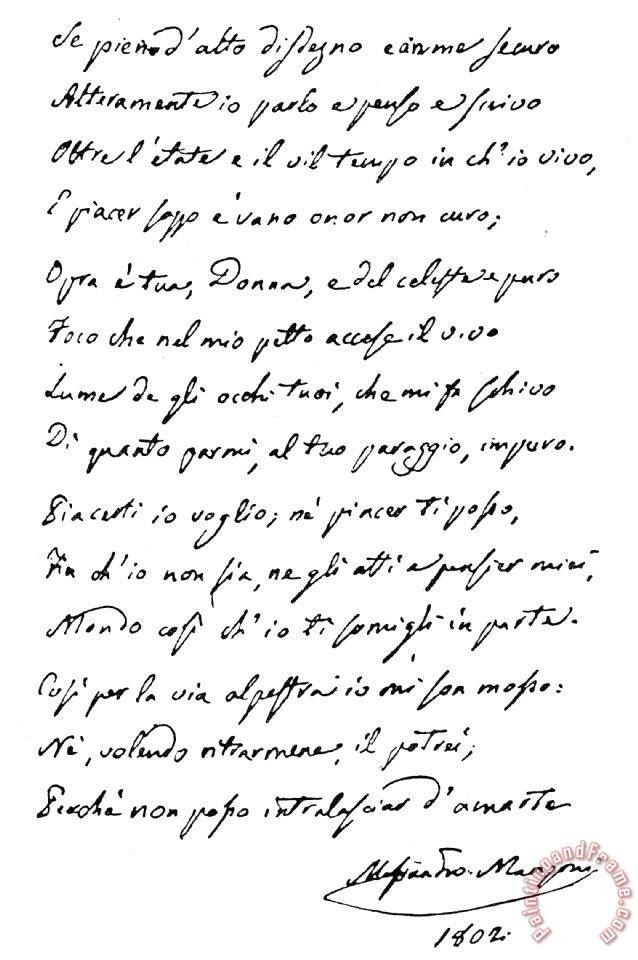 Se pien d'alto disdegno e in me securo
Alteramente io parlo e penso e scrivo
Oltre l'etate e il vil tempo in ch'io vivo,
E piacer sozzo e vano onor non curo;
Opra è tua, Donna, e del celeste e puro
Foco che nel mio petto accese il vivo
Lume de gli occhi tuoi, che mi fa schivo
Di quanto parmi, al tuo paraggio, impuro.
Piacerti io voglio; né piacer ti posso,
Fin ch'io non sia, ne gli atti e pensier miei,
Mondo così ch'io ti somigli in parte.
Così per la via alpestra io mi son mosso:
Nè, volendo ritrarmene, il potrei;
Perchè non posso intralasciar d'amarte
Alessandro Manzoni
1802.
PaintingandFrame.com